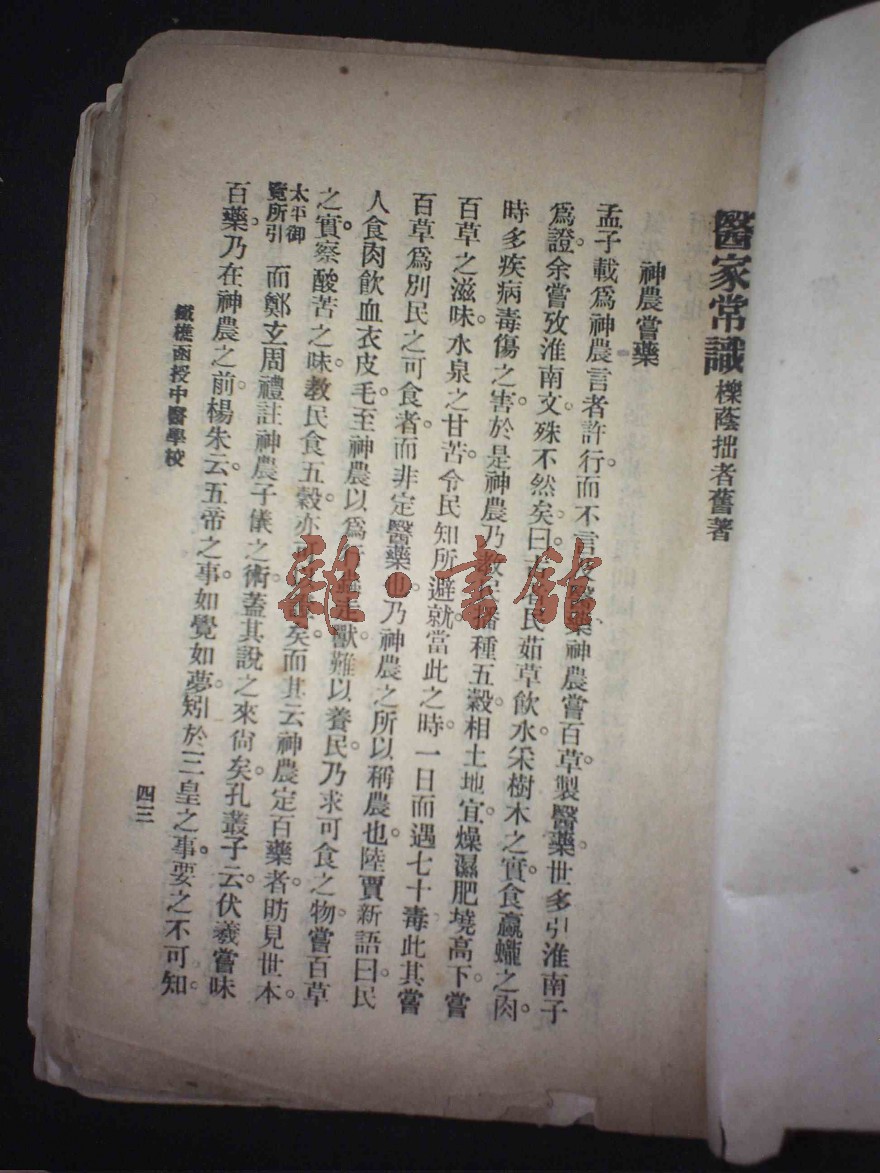 醫家常識 櫟蔭拙者舊著
神農嘗藥
孟子載爲神農言者許行而不言及醫藥神農嘗百草製醫藥世多引淮南子
爲證余嘗攷淮南文殊不然矣曰古者民茹草飮水采樹木之實食蠃蠬之肉
時多疾病毒傷之害於是神農乃教民播種五穀相土地宜燥濕肥墝高下嘗
百草之滋味水泉之甘苦令民知所避就當此之時一日而遇七十毒此其嘗
百草爲別民之可食者而非定醫藥也乃神農之所以稱農也陸賈新語曰民
人食肉飮血衣皮毛至神農以爲行蟲走獸難以養民乃求可食之物嘗百草
之實察酸苦之味教民食五穀亦可以證矣而其云神農定百藥者昉見世本
太平御覽所引 而鄭玄周禮註神農子儀之術蓋其說之來尙矣孔叢子云伏羲嘗味
百藥乃在神農之前楊朱云五帝之事如覺如夢矧於三皇之事要之不可知
鐵樵函授中醫學校
四三
雜·書館